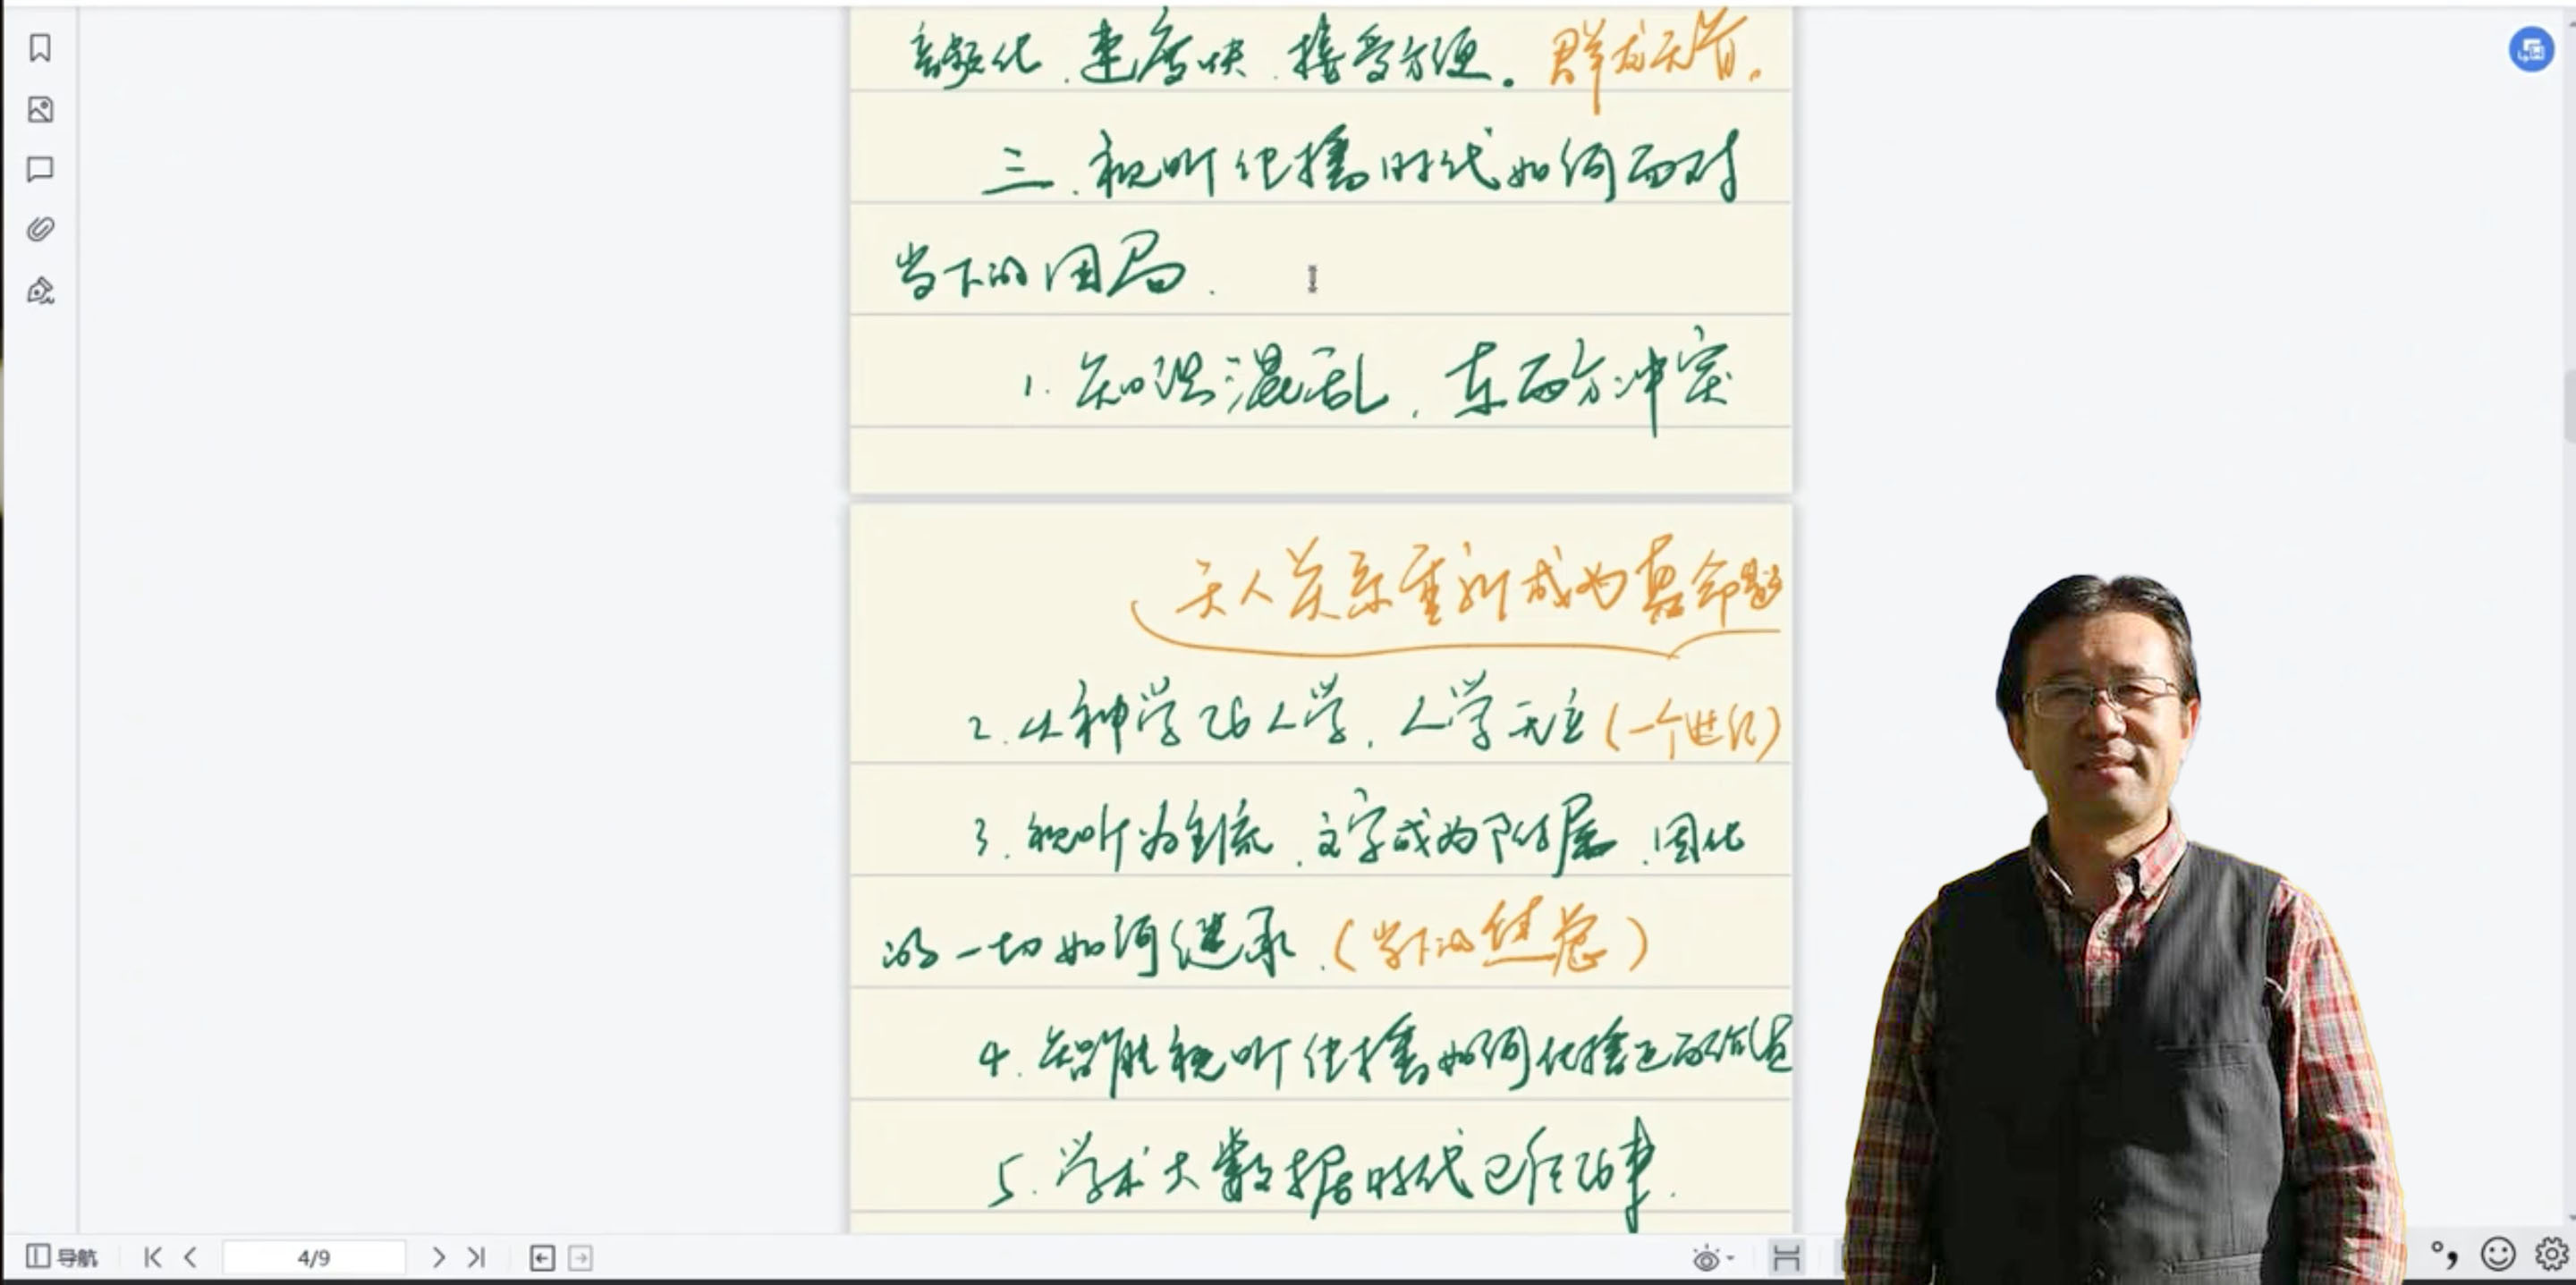 音频化、速度快、接受方便。群龙无首。
三、视听传播时代如何面对
当下的困局.
1. 知识混乱，东西方冲突
天人关系重新成为真命题
2. 从神学到人学，人学无立（一个世纪）
3. 视听为主流，文字成为附属，固化
的一切如何继承.（当下的焦虑）
4. 智能视听传播如何传播正面价值
5. 学术大数据时代已经到来.
导航
4/9